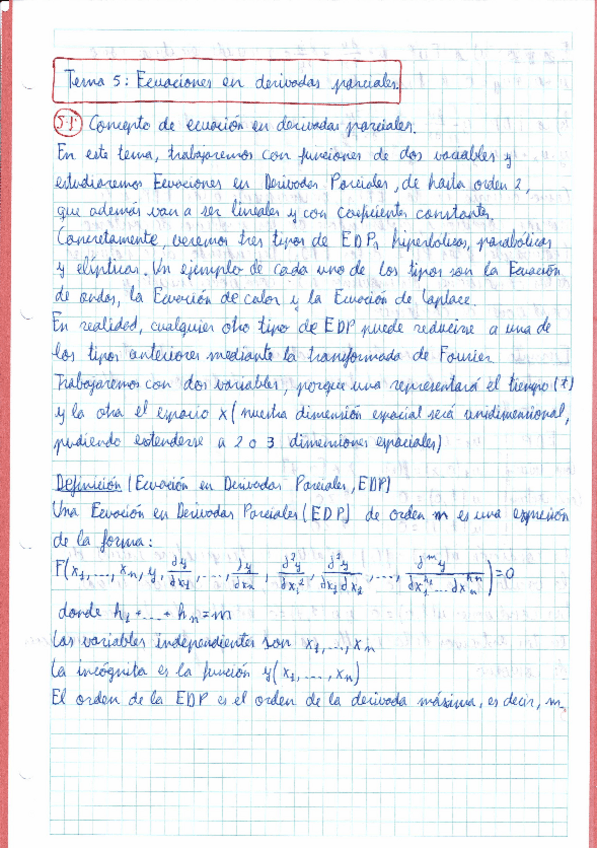 Tema 5: Ecuaciones en derivadas parciales.
5.1. Concepto de ecuación en derivadas parciales.
En este tema, trabajaremos con funciones de dos variables y
estudiaremos Ecuaciones en Derivadas Parciales, de hasta orden 2,
que además van a ser lineales y con coeficientes constantes.
Concretamente, veremos tres tipos de EDPs hiperbólicas, parabólicas
y elípticas. Un ejemplo de cada uno de los tipos son la Ecuación
de ondas, la Ecuación de calor y la Ecuación de Laplace.
En realidad, cualquier otro tipo de EDP puede reducirse a una de
los tipos anteriores mediante la transformada de Fourier
Trabajaremos con dos variables, porque una representará el tiempo (t)
y la otra el espacio x (nuestra dimensión espacial será unidimensional,
pudiendo extenderse a 2 o 3 dimensiones espaciales)
Definición (Ecuación en Derivadas Parciales, EDP)
Una Ecuación en Derivadas Parciales (EDP) de orden m es una expresión
de la forma:
F(x₁, ..., xₙ, y, ∂y/∂x₁, ..., ∂y/∂xₙ, ∂²y/∂x₁², ∂²y/∂x₁∂x₂, ..., ∂ᵐy/∂x₁ʰ¹...∂xₙʰⁿ) = 0
donde h₁ + ... + hₙ = m
Las variables independientes son x₁, ..., xₙ
La incógnita es la función y(x₁, ..., xₙ)
El orden de la EDP es el orden de la derivada máxima, es decir, m.